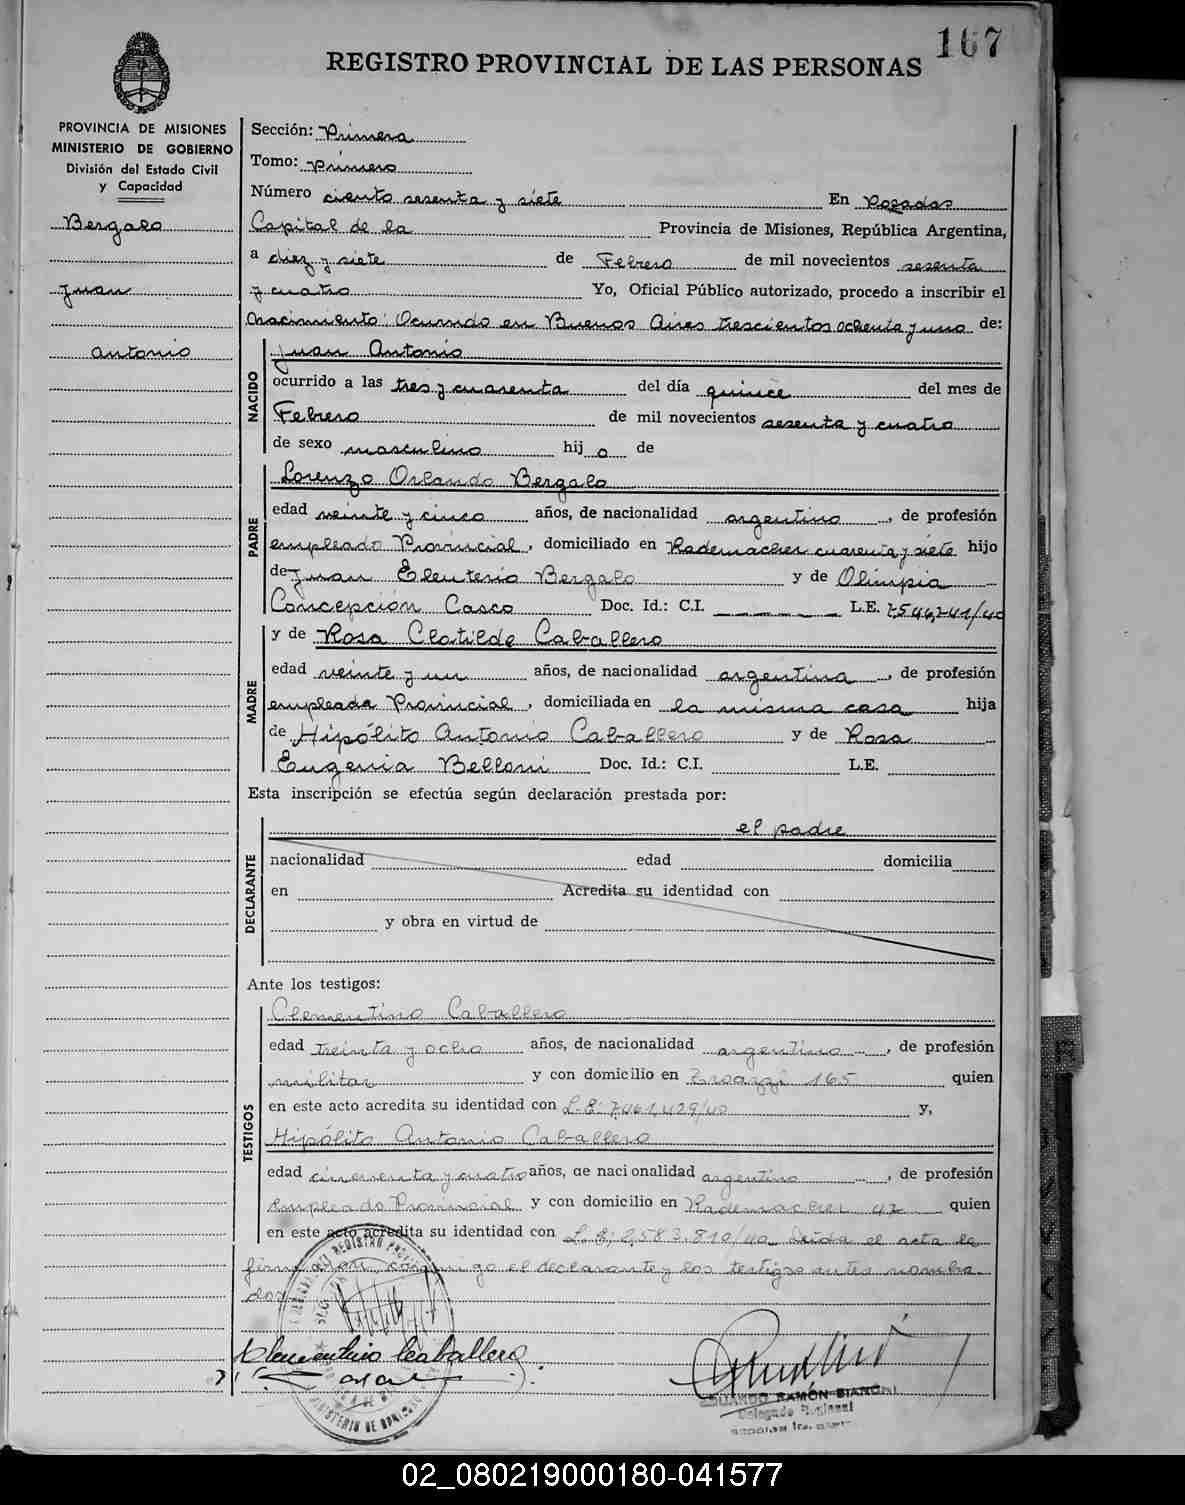 167
REGISTRO PROVINCIAL DE LAS PERSONAS
PROVINCIA DE MISIONES
MINISTERIO DE GOBIERNO
División del Estado Civil
y Capacidad
Bergalo
Juan
Antonio
Sección: Primera
Tomo: Primero
Número ciento sesenta y siete En Posadas
Capital de la Provincia de Misiones, República Argentina,
a diez y siete de Febrero de mil novecientos sesenta
y cuatro Yo, Oficial Público autorizado, procedo a inscribir el
Nacimiento: Ocurrido en Buenos Aires trescientos ochenta y uno de:
NACIDO
Juan Antonio
ocurrido a las tres y cuarenta del día quince del mes de
Febrero de mil novecientos sesenta y cuatro
de sexo masculino hij o de
PADRE
Lorenzo Orlando Bergalo
edad veinte y cinco años, de nacionalidad argentino, de profesión
empleado Provincial, domiciliado en Rademacher cuarenta y siete hijo
de Juan Eleuterio Bergalo y de Olimpia
Concepción Casco Doc. Id.: C.I. L.E. 7.546.241/40
MADRE
y de Rosa Clotilde Caballero
edad veinte y un años, de nacionalidad argentina, de profesión
empleada Provincial, domiciliada en la misma casa hija
de Hipólito Antonio Caballero y de Rosa
Eugenia Belloni Doc. Id.: C.I. L.E.
Esta inscripción se efectúa según declaración prestada por:
DECLARANTE
el padre
nacionalidad edad domicilia
en Acredita su identidad con
y obra en virtud de
Ante los testigos:
TESTIGOS
Clementino Caballero
edad treinta y ocho años, de nacionalidad argentino, de profesión
militar y con domicilio en 165 quien
en este acto acredita su identidad con L.E: 7.461.429/40 y,
Hipólito Antonio Caballero
edad cincuenta y cuatro años, de nacionalidad argentino, de profesión
empleado Provincial y con domicilio en Rademacher 47 quien
en este acto acredita su identidad con L.E: 2.583.810/40 Leída el acta la
firmaron conmigo el declarante y los testigos antes nombra-
dos
Clementino Caballero
EDUARDO RAMÓN BIANCHI
Delegado
MINISTERIO DE
02_080219000180-041577